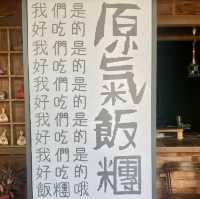 原氣飯糰
我們是
好吃的
我們是
好吃的
我們是
好吃的
我們是
好吃的
我們是
好吃的
飯糰哦